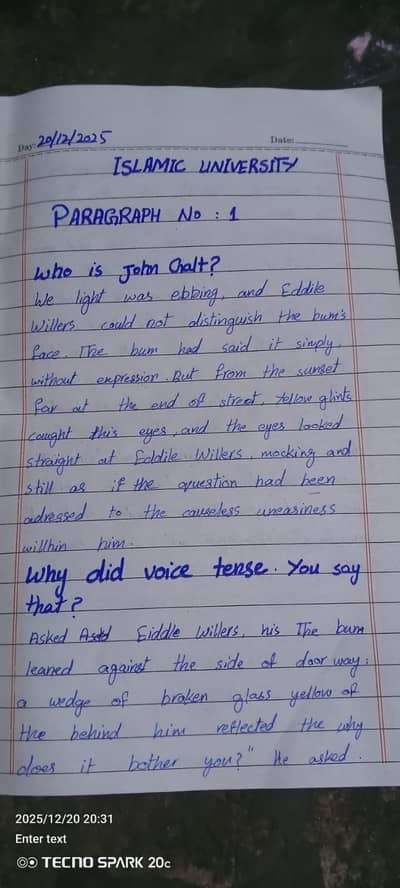 Day: 20/12/2025 Date:
ISLAMIC UNIVERSITY
PARAGRAPH No : 1
Who is John Chalt?
We light was ebbing, and Eddile
Willers could not distinguish the bum's
face. The bum had said it simply,
without expression. But from the sunset
far at the end of street, yellow glints
caught this eyes, and the eyes looked
straight at Eddile Willers, mocking and
still as if the question had been
adressed to the causeless uneasiness
willhin him.
Why did voice tense. You say
that?
Asked Eiddle Willers, his The bum
leaned against the side of door way;
a wedge of broken glass yellow of
the behind him reflected the why
does it bother you?" He asked.
2025/12/20 20:31
Enter text
TECNO SPARK 20C